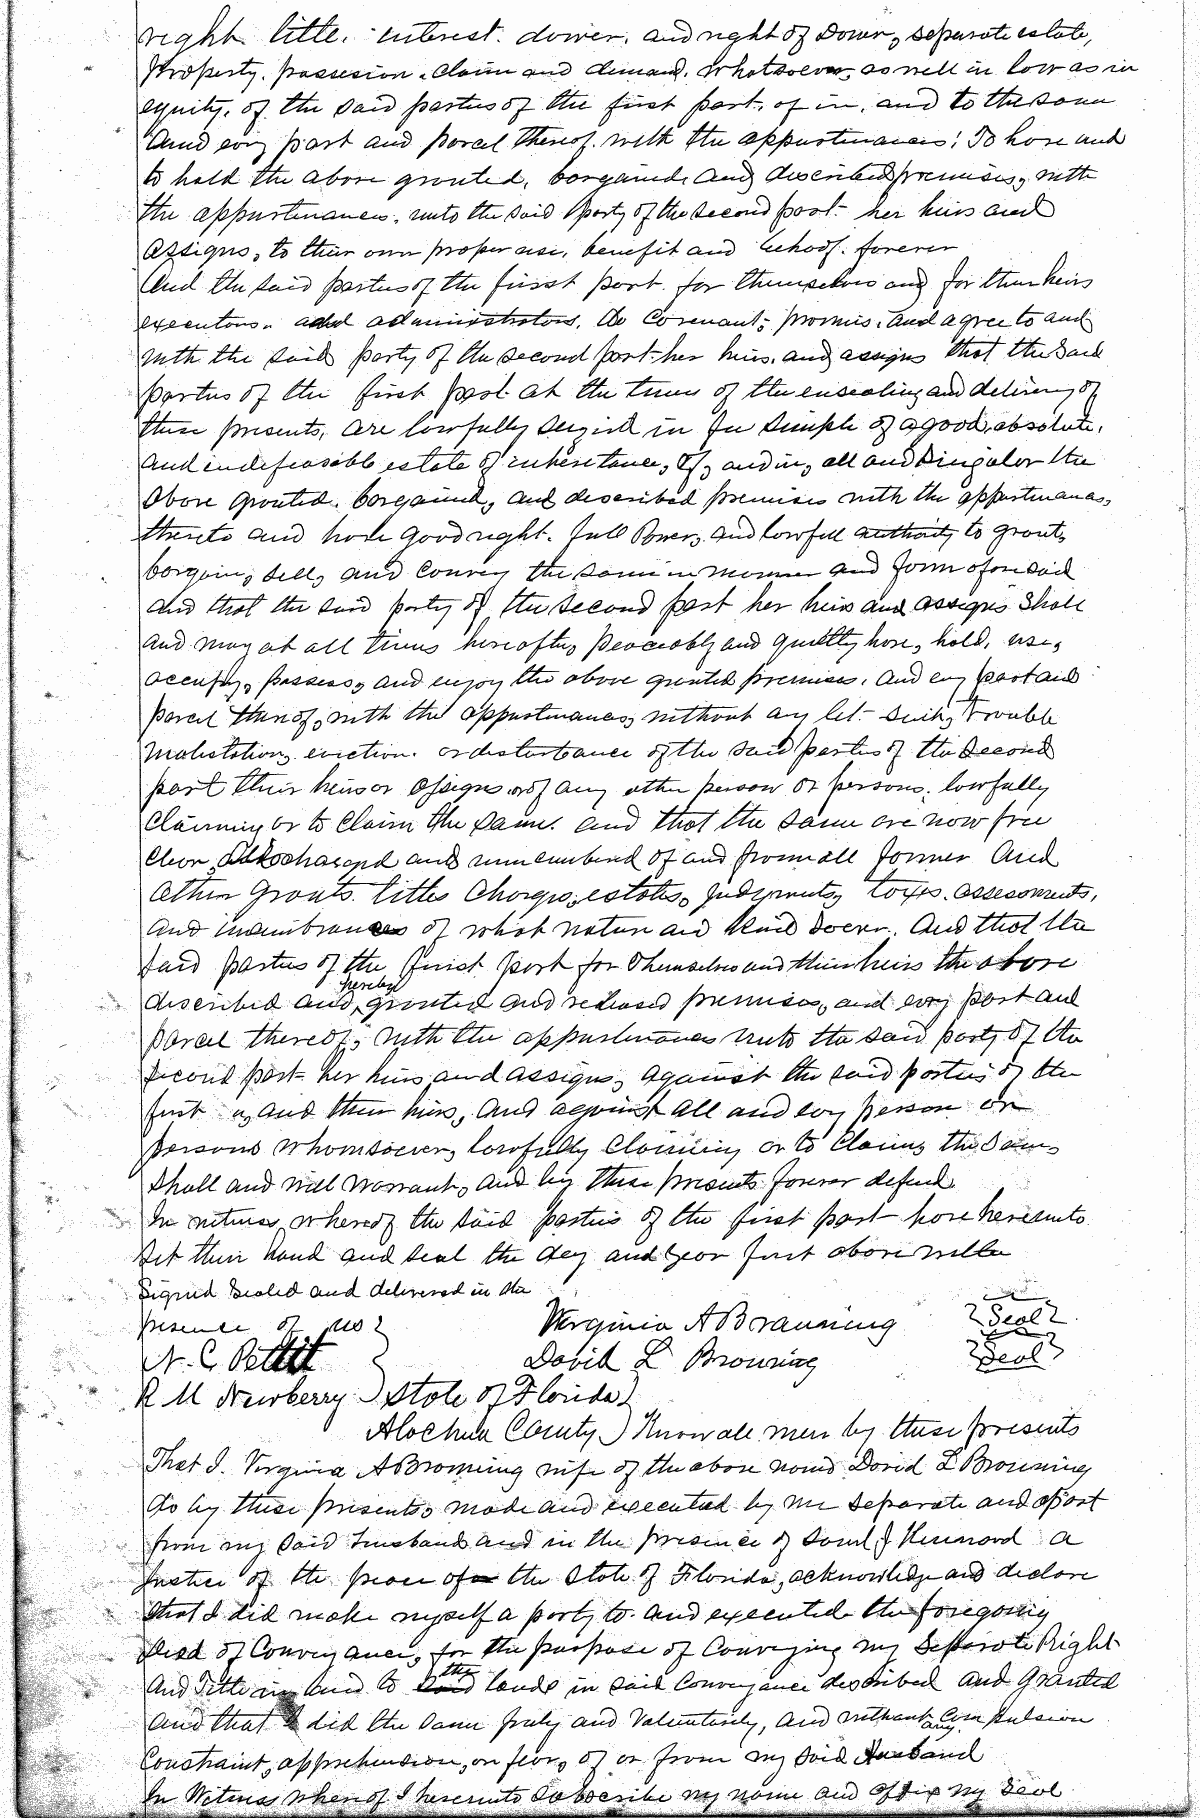 right. title. interest. dower. and right of Dower, separate estate,
property. possesion. Claim and demand. whatsoever, as well in law as in
equity. of the said parties of the first part. of in. and to the same
And evry part and parcel thereof. with the appurtenances: To have and
to hold the above granted. bargained. and described premises, with
the appurtenances. unto the said party of the second part. her heirs and
assigns, to their own proper use. benefit and behoof. forever
And the said parties of the first part. for themselves and for their heirs
executors. and administrators. do Covenant; promis. and agree to and
with the said party of the second part her heirs. and assigns that the said
parties of the first part at the time of the ensealing and delivery of
these presents. are lawfully seized in fee simple of a good, absolute.
and indefeasible estate of inheritance, of, and in, all and Singular the
above granted. bargained, and described premises with the appurtenances,
thereto and have good right. full Power, and lawfull authority to grant,
bargain, sell, and convey the same in manner and form aforesaid
and that the said party of the second part her heirs and assigns shall
and may at all times hereafter, peaceably and quietly have, hold, use,
occupy, possess, and enjoy the above granted premises. and evry part and
parcel thereof, with the appurtenances, without any let. suit, trouble
molistation, eviction. or disturbance of the said parties of the second
part their heirs or assigns or of any other person or persons. lawfully
Claiming or to Claim the same. and that the same are now free
Clear, discharged and unincumbered of and from all former And
other grants. titles Charges, estates, judgments, taxes. assessments.
and incumbrances of what nature and kind soever. And that the
said parties of the first part for themselves and their heirs the above
described and hereby granted and released premises, and evry part and
parcel thereof, with the appurtenances unto the said party of the
second part her heirs and assigns, against the said parties of the
first and their heirs, and against all and evry person or
persons whomsoever, lawfully Claiming or to Claim, the same
shall and will warrant, and by these presents forever defend
In witness whereof the said parties of the first part have hereunto
set their hand and seal the day and year first above
Signed Sealed and delivered in the
presence of us
Verginia A Braunning Seal
N. C. Pettit David L Browning Seal
R M Newberry State of Florida
Alochua County Know all men by these presents
That I. Verginia A Browning wife of the above named David L Browning
do by these presents, made and executed by me separate and apart
from my said husband and in the presence of Saml J Kennard a
Justice of the peace of the State of Florida, acknowledge and declare
that I did make myself a party to. and executed the foregoing
Deed of Conveyance, for the purpose of Conveying my Seperate Right
And Title in and to the lands in said Conveyance described and granted
and that I did the same fruly and Voluntarily, and without any Compulsion
Constraint, apprehension, or fear, of or from my said Husband
In Witness whereof I hereunto Subscribe my name and affix my Seal